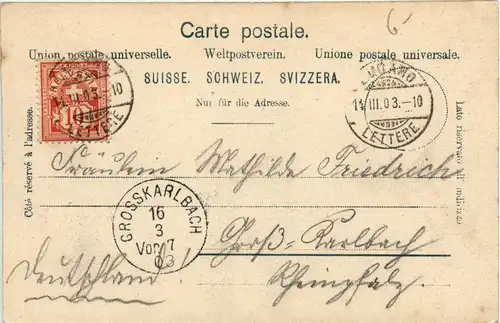 Carte postale.
6
Union postale universelle. Weltpostverein. Unione postale universale.
SUISSE. SCHWEIZ. SVIZZERA.
Nur für die Adresse.
Côté réservé à l'adresse.
Lato riservato all'indirizzo
10
14 III. 03.-10
LETTERE
LUGANO
14 III. 03.-10
LETTERE
Fräulein Mathilde Friedrich
GROSSKARLBACH
16
3
Vor. 7
03
Groß-Karlbach
Rheinpfalz.
Deutschland!